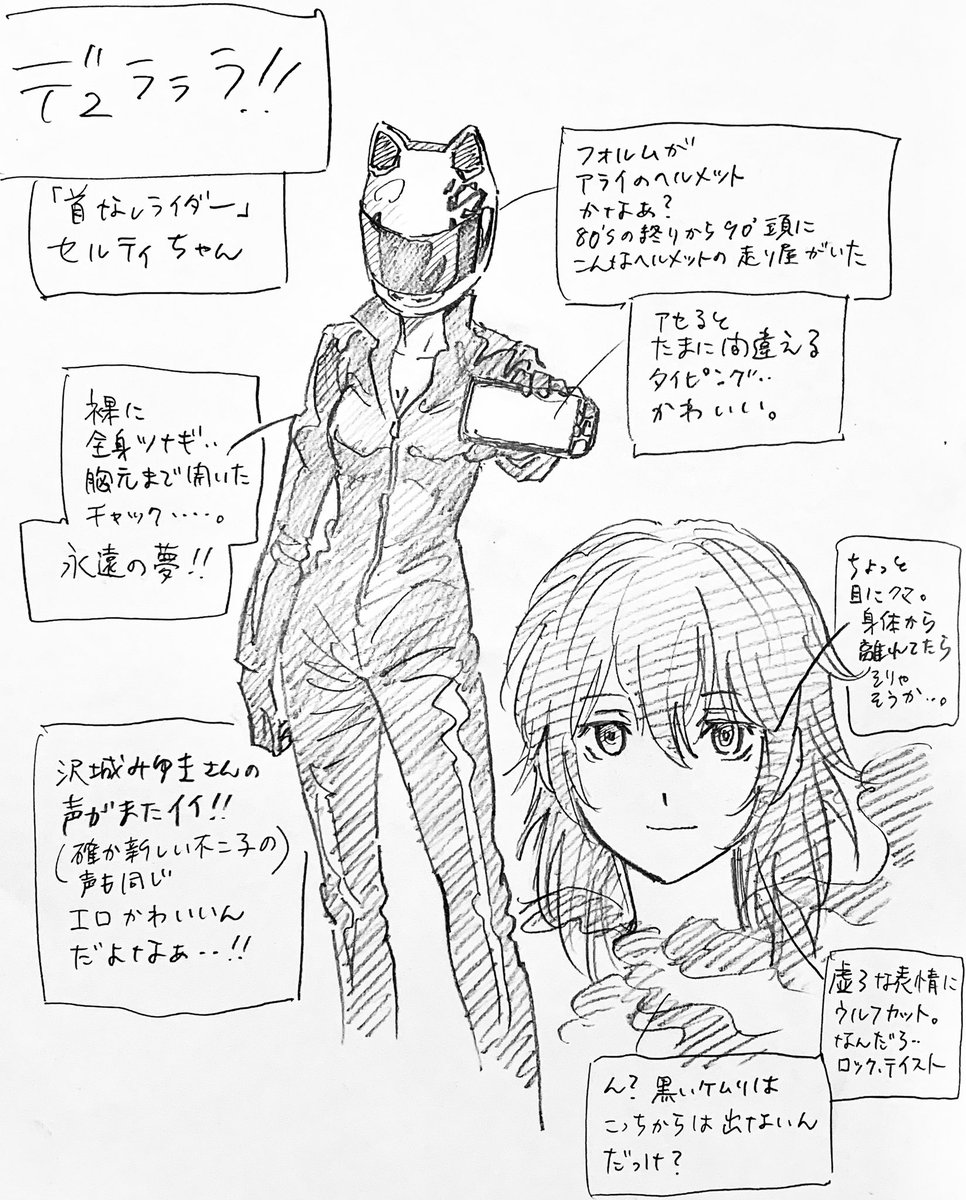 デュラララ!!
「首なしライダー」
セルティちゃん
フォルムが
アライのヘルメット
かなぁ?
80'sの終りから90'頭に
こんなヘルメットの走り屋がいた
アセると
たまに間違える
タイピング..
かわいい。
裸に
全身ツナギ..
胸元まで開いた
チャック.....。
永遠の夢!!
ちょっと
目にクマ。
身体から
離れてたら
そりゃ
そうか...。
沢城みゆきさんの
声がまたイイ!!
(確か新しい不二子の)
声も同じ
エロかわいいん
だよなぁ...!!
虚ろな表情に
ウルフカット。
なんだろ..
ロック、テイスト
ん?黒いケムリは
こっちからは出ないん
だっけ?